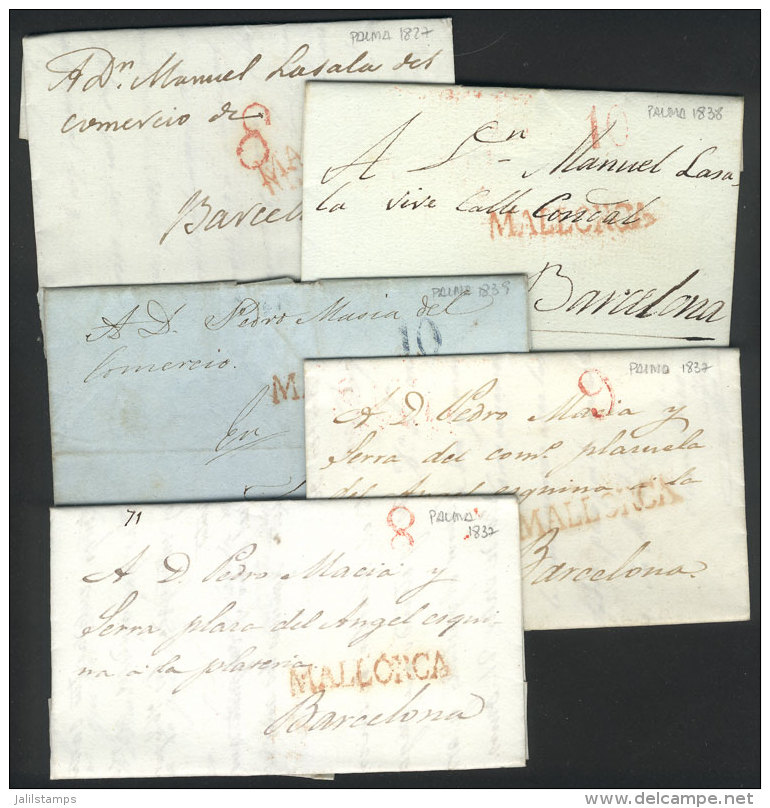 PALMA 1827
A Dn. Manuel Lasala del
comercio de
8
MA
Barcel
PALMA 1838
10
A Sn. Manuel Lasa-
la vive Calle Condal
MALLORCA
Barcelona
PALMA 1838
A D. Pedro Masia del
Comercio.
10
MA
en
PALMA 1837
9
A D Pedro Macia y
Serra del como. plazuela
del Angel esquina a la
MALLORCA
Barcelona.
71
8
PALMA
1837
A D Pedro Macia y
Serra plaza del Angel esqui-
na a la plateria
MALLORCA
Barcelona
jalilstamps
delcampe.net